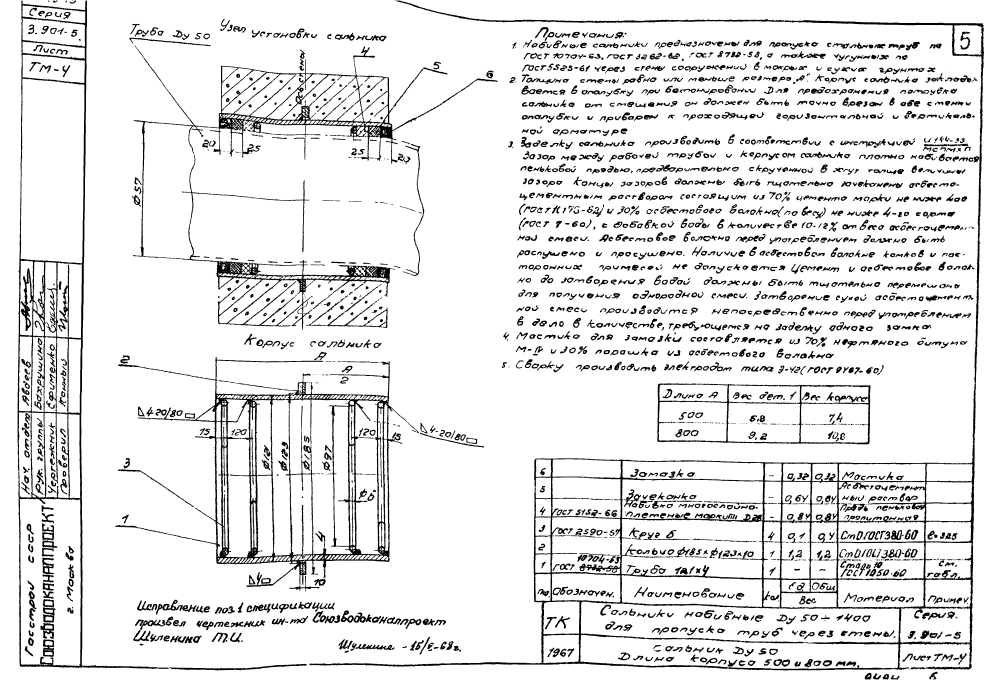 Серия
3.901-5.
Лист
ТМ-4
5
Труба Ду 50
Узел установки сальника
4
5
6
Ось стены
20
25
25
20
Ø57
Корпус сальника
2
А
А
2
4-20/80
4-20/80
15
120
120
15
Ø121
Ø123
Ø185
Ø97
Ø6
3
1
4
4
10
Примечания:
1. Набивные сальники предназначены для пропуска стальных труб по
ГОСТ 10704-63, ГОСТ 3262-62, ГОСТ 8732-58, а также чугунных по
ГОСТ 5525-61 через стены сооружений в мокрых и сухих грунтах
2. Толщина стены равна или меньше размера „А". Корпус сальника заклады-
вается в опалубку при бетонировании Для предохранения патрубка
сальника от смещения он должен быть точно врезан в две стенки
опалубки и приварен к проходящей горизонтальной и вертикаль-
ной арматуре
3. Заделку сальника производить в соответствии с инструкцией
Зазор между рабочей трубой и корпусом сальника плотно набивается
пеньковой прядью, предварительно скрученной в жгут толще величины
зазора Концы зазоров должны быть тщательно зачеканены асбесто-
цементным раствором состоящим из 70% цемента марки не ниже 400
и 30% асбестового волокна (по весу) не ниже 4-го сорта
(ГОСТ 7-60), с добавкой воды в количестве 10-12% от веса асбестоцемент-
ной смеси. Асбестовое волокно перед употреблением должно быть
распушено и просушено. Наличие в асбестовом волокне комков и пос-
торонних примесей не допускается Цемент и асбестовое волок-
но до затворения водой должны быть тщательно перемешаны
для получения однородной смеси. Затворение сухой асбестоцемент-
ной смеси производится непосредственно перед употреблением
в дело в количестве, требующемся на заделку одного замка.
4. Мастика для замазки составляется из 70% нефтяного битума
М-IV и 30% порошка из асбестового волокна
5. Сварку производить электродом типа Э-42 (ГОСТ 9467-60)
Длина А Вес дет. 1 Вес корпуса
500 6,8 7,4
800 9,2 10,8
6 Замазка - 0,32 0,32 Мастика
5 Зачеканка - 0,64 0,64 Асбестоцемент
ный раствор
4 ГОСТ 5152-66 Набивка многослойно-
плетеные марки - 0,84 0,84 Прядь пеньковая
пропитанная
3 ГОСТ 2590-57 Круг 6 4 0,1 0,4 Ст0 ГОСТ 380-60 ℓ=325
2 Кольцо Ø185×Ø123×10 1 1,2 1,2 Ст0 ГОСТ 380-60
1 ГОСТ 10704-63 8732-58 Труба 121×4 1 - - Сталь 10
ГОСТ 1050-60 см.
табл.
Обозначен. Наименование Кол Ед. Общ Вес Материал Примеч.
ТК
Сальники набивные Ду 50÷1400
для пропуска труб через стены.
Серия.
3.901-5
1967
Сальник Ду 50
Длина корпуса 500 и 800 мм.
Лист ТМ-4
Исправление поз. 1 спецификации
произвел чертежник ин-та Союзводоканалпроект
Шуленина Т.И.
Госстрой СССР
СОЮЗВОДОКАНАЛПРОЕКТ
г. Москва
Нач. отдела Авдеев
Рук. группы Вахрушина
Чертежник Ефименко
Проверил Конный